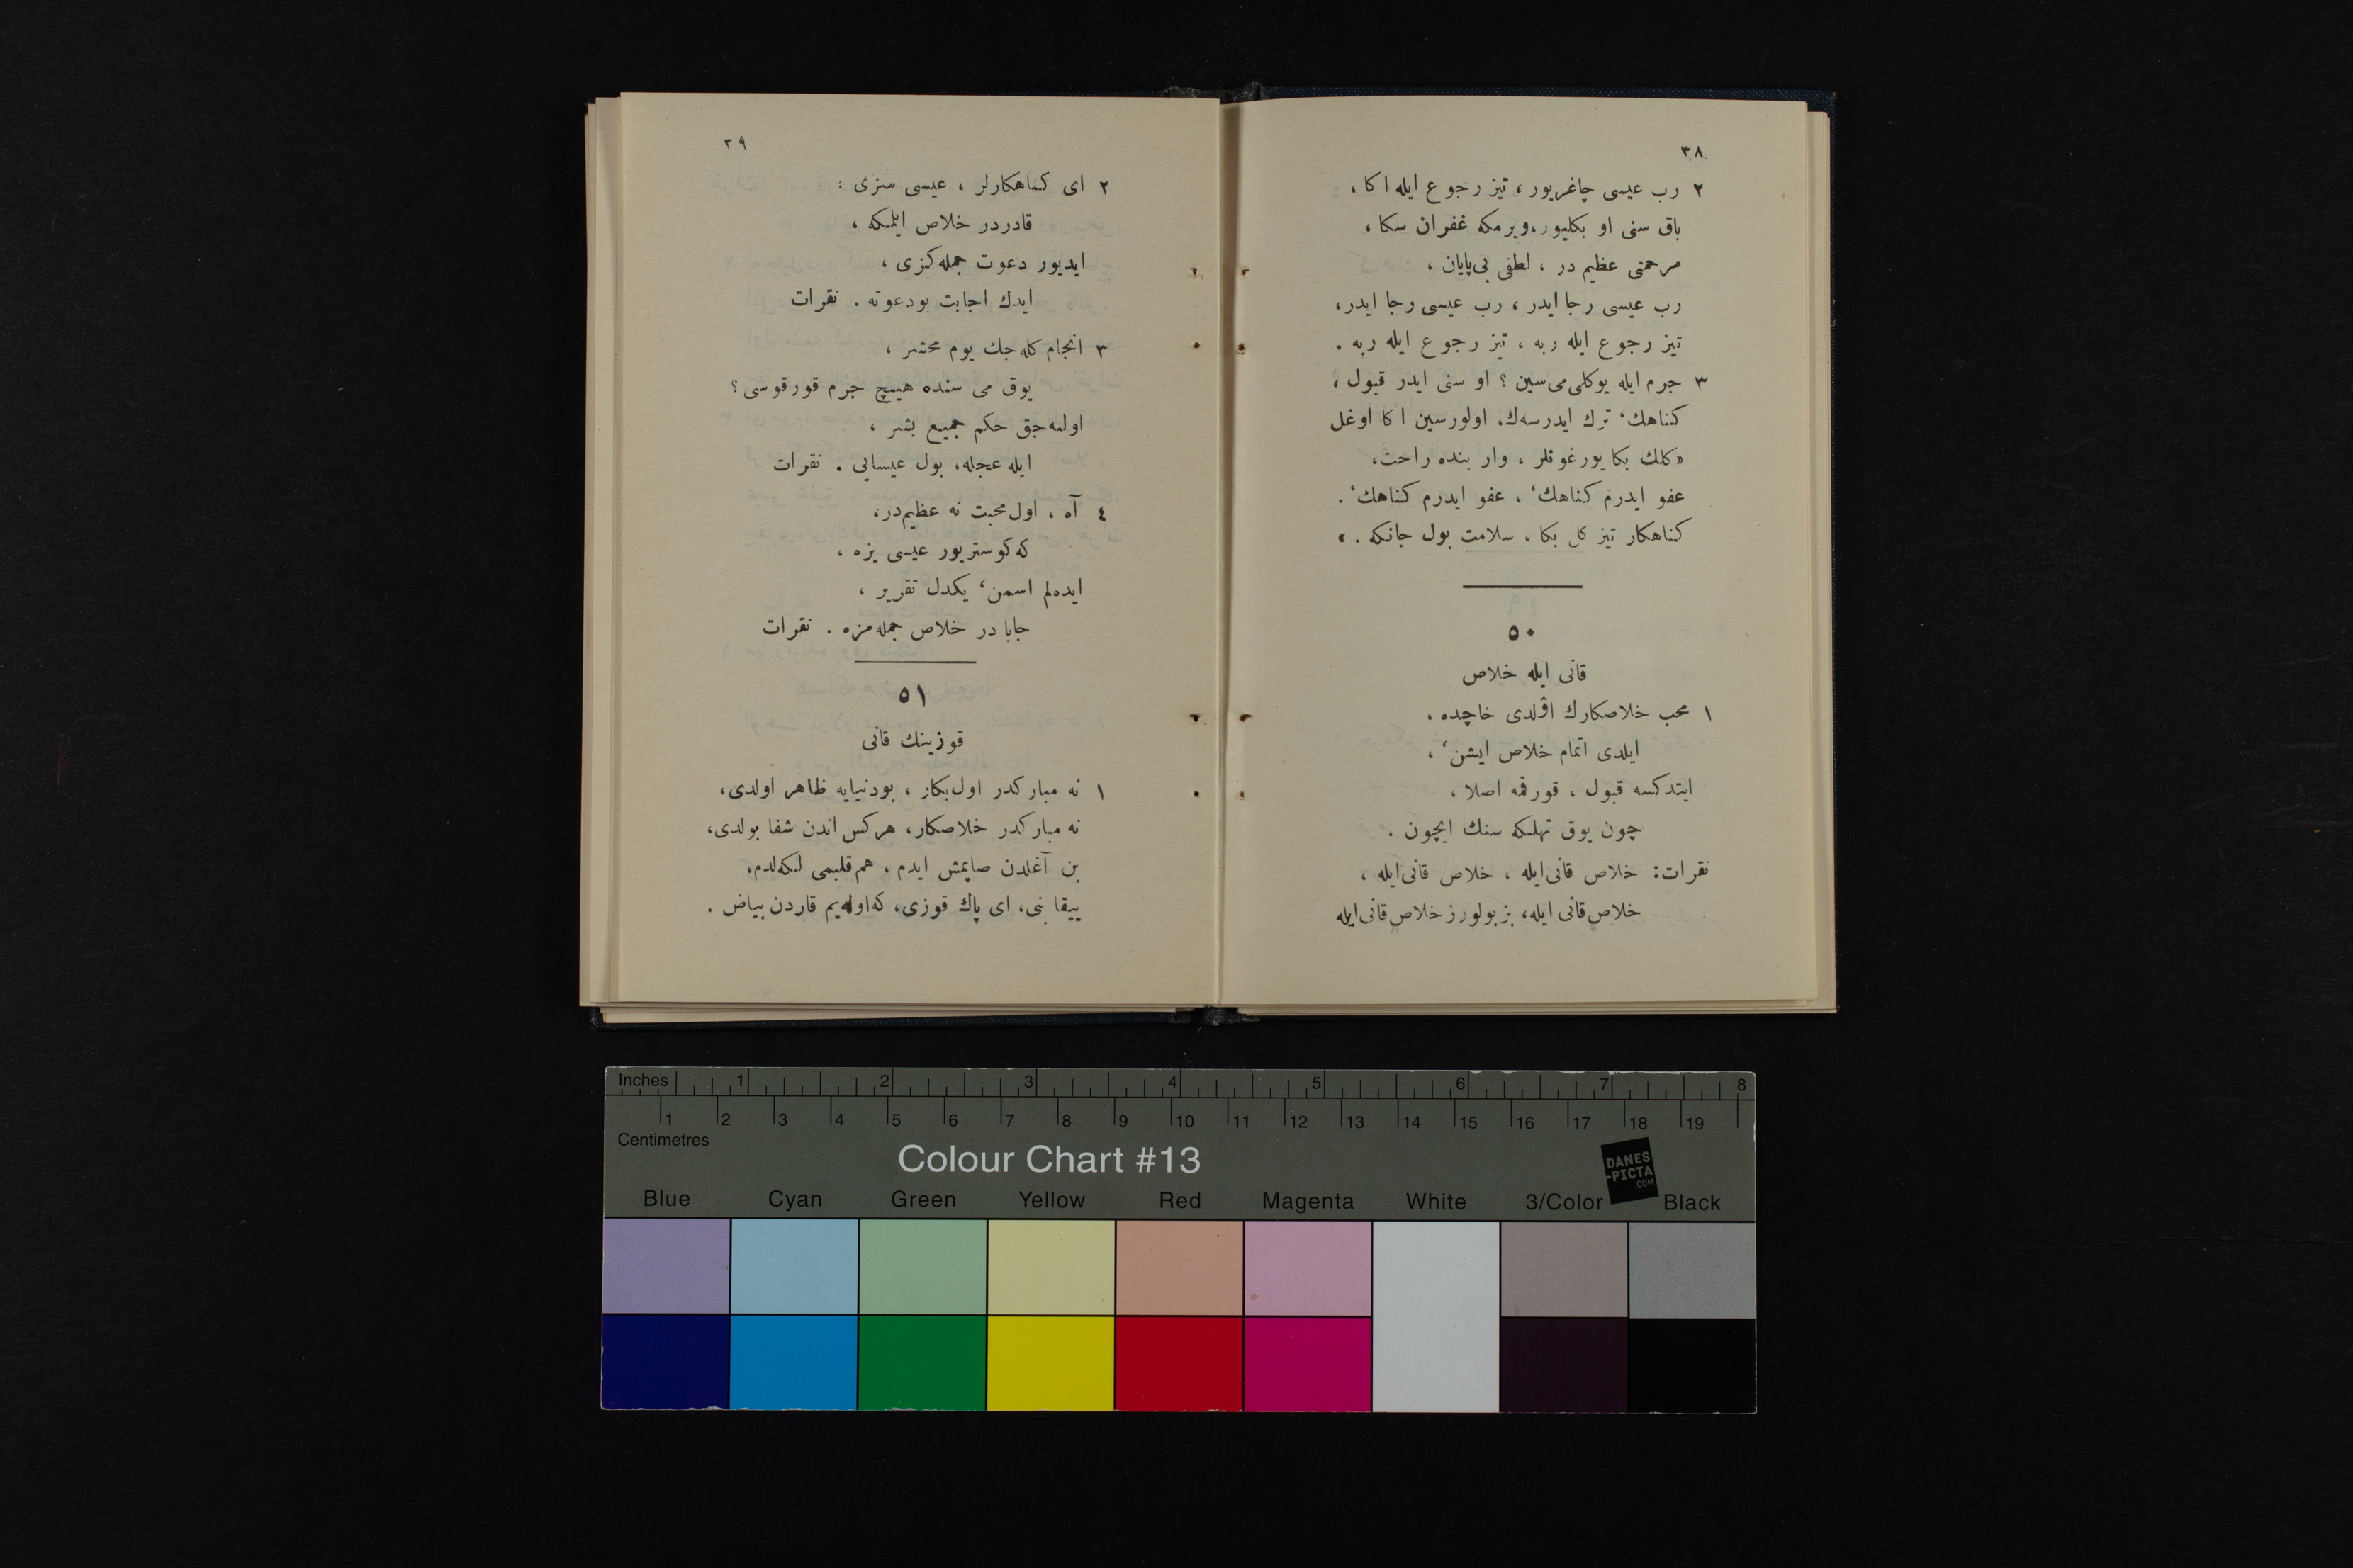 ٣٨
٢ رب عیسی چاغریور، تیز رجوع ایله اکا،
باق سنی او بکلیور،ویرمکه غفران سکا،
مرحمتی عظیم در ، لطفی بی‌پایان ،
رب عیسی رجا ایدر ، رب عیسی رجا ایدر،
تیز رجوع ایله ربه ، تیز رجوع ایله ربه .
٣ جرم ایله یوکلی‌می‌سین ؟ او سنی ایدر قبول ،
کناهك‘ ترك ایدرسه‌ك، اولورسین اکا اوغل
«کلك بکا یورغونلر ، وار بنده راحت،
عفو ایدرم کناهك‘ ، عفو ایدرم کناهك‘.
کناهکار تیز کل بکا ، سلامت بول جانکه . »
٥٠
قانی ایله خلاص
١ محب خلاصکارك اۋلدی خاچده ،
ایلدی اتمام خلاص ایشن‘ ،
ایتدکسه قبول ، قورقمه اصلا ،
چون یوق تهلکه سنك ایچون .
نقرات: خلاص قانی‌ایله ، خلاص قانی‌ایله ،
خلاص‌قانی ایله، بز بولورز خلاص‌قانی‌ایله
٣٩
٢ ای کناهکارلر ، عیسی سنزی :
قادردر خلاص ایلمکه ،
ایدیور دعوت جمله‌کزی ،
ایدك اجابت بودعوته . نقرات
٣ انجام کله‌جك یوم محشر ،
یوق می سنده هییچ جرم قورقوسی؟
اولنه‌جق حکم جمیع بشر ،
ایله عجله، بول عیسایی . نقرات
٤ آه ، اول‌محبت نه عظیم‌در،
که‌کوستریور عیسی یزه ،
ایده‌لم اسمن‘ یکدل تقریر ،
جابا در خلاص جمله‌مزه . نقرات
٥١
قوزینك قانی
١ نه مبارکدر اول‌بکار ، بودنیایه ظاهر اولدی،
نه مبارکدر خلاصکار، هرکس‌اندن شفا بولدی،
بن آغلدن صاپمش ایدم ، هم‌قلبمی لکه‌لدم،
ییقا بنی، ای پاك قوزی، که‌اوله‌یم قاردن‌بیاض .
Inches 1 2 3 4 5 6 7 8
1 2 3 4 5 6 7 8 9 10 11 12 13 14 15 16 17 18 19
Centimetres
Colour Chart #13
DANES
-PICTA
.COM
Blue Cyan Green Yellow Red Magenta White 3/Color Black